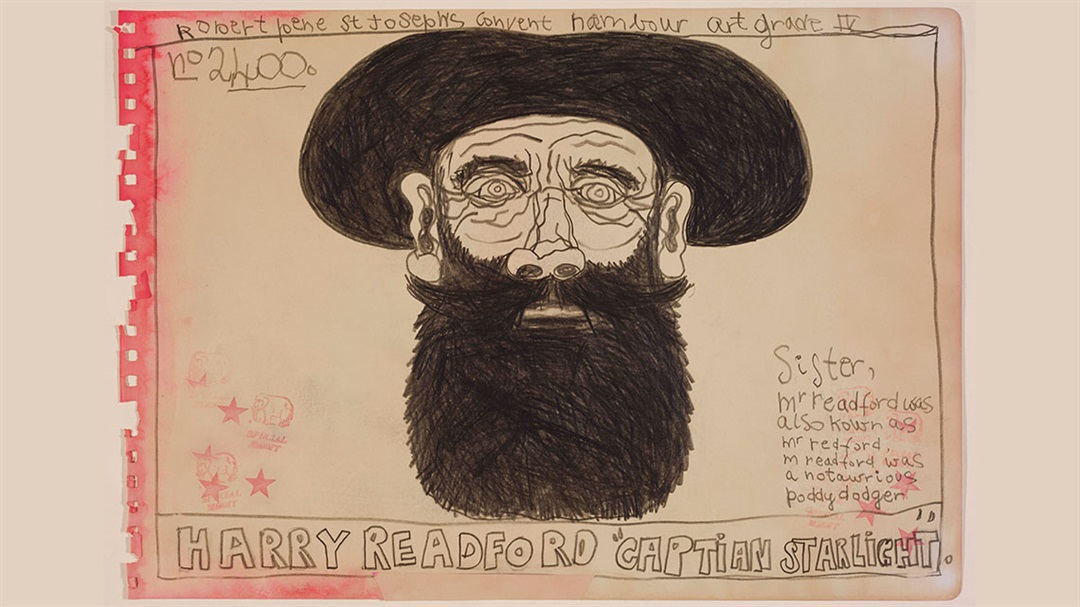 Robert pene st Josephs convent nambour art grade IV
no 2400.
Sister,
mr readford was
also kown as
mr redford,
m readford was
a notawrious
poddy dodger
SPECIAL
MERIT
HARRY READFORD "CAPTIAN STARLIGHT".